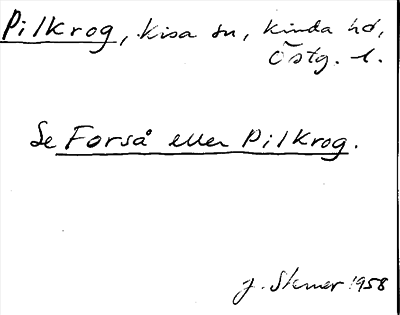 Pilkrog, Kisa sn, Kinda hd,
Östg. l.
Se Forså eller Pilkrog.
J. Stener 1958